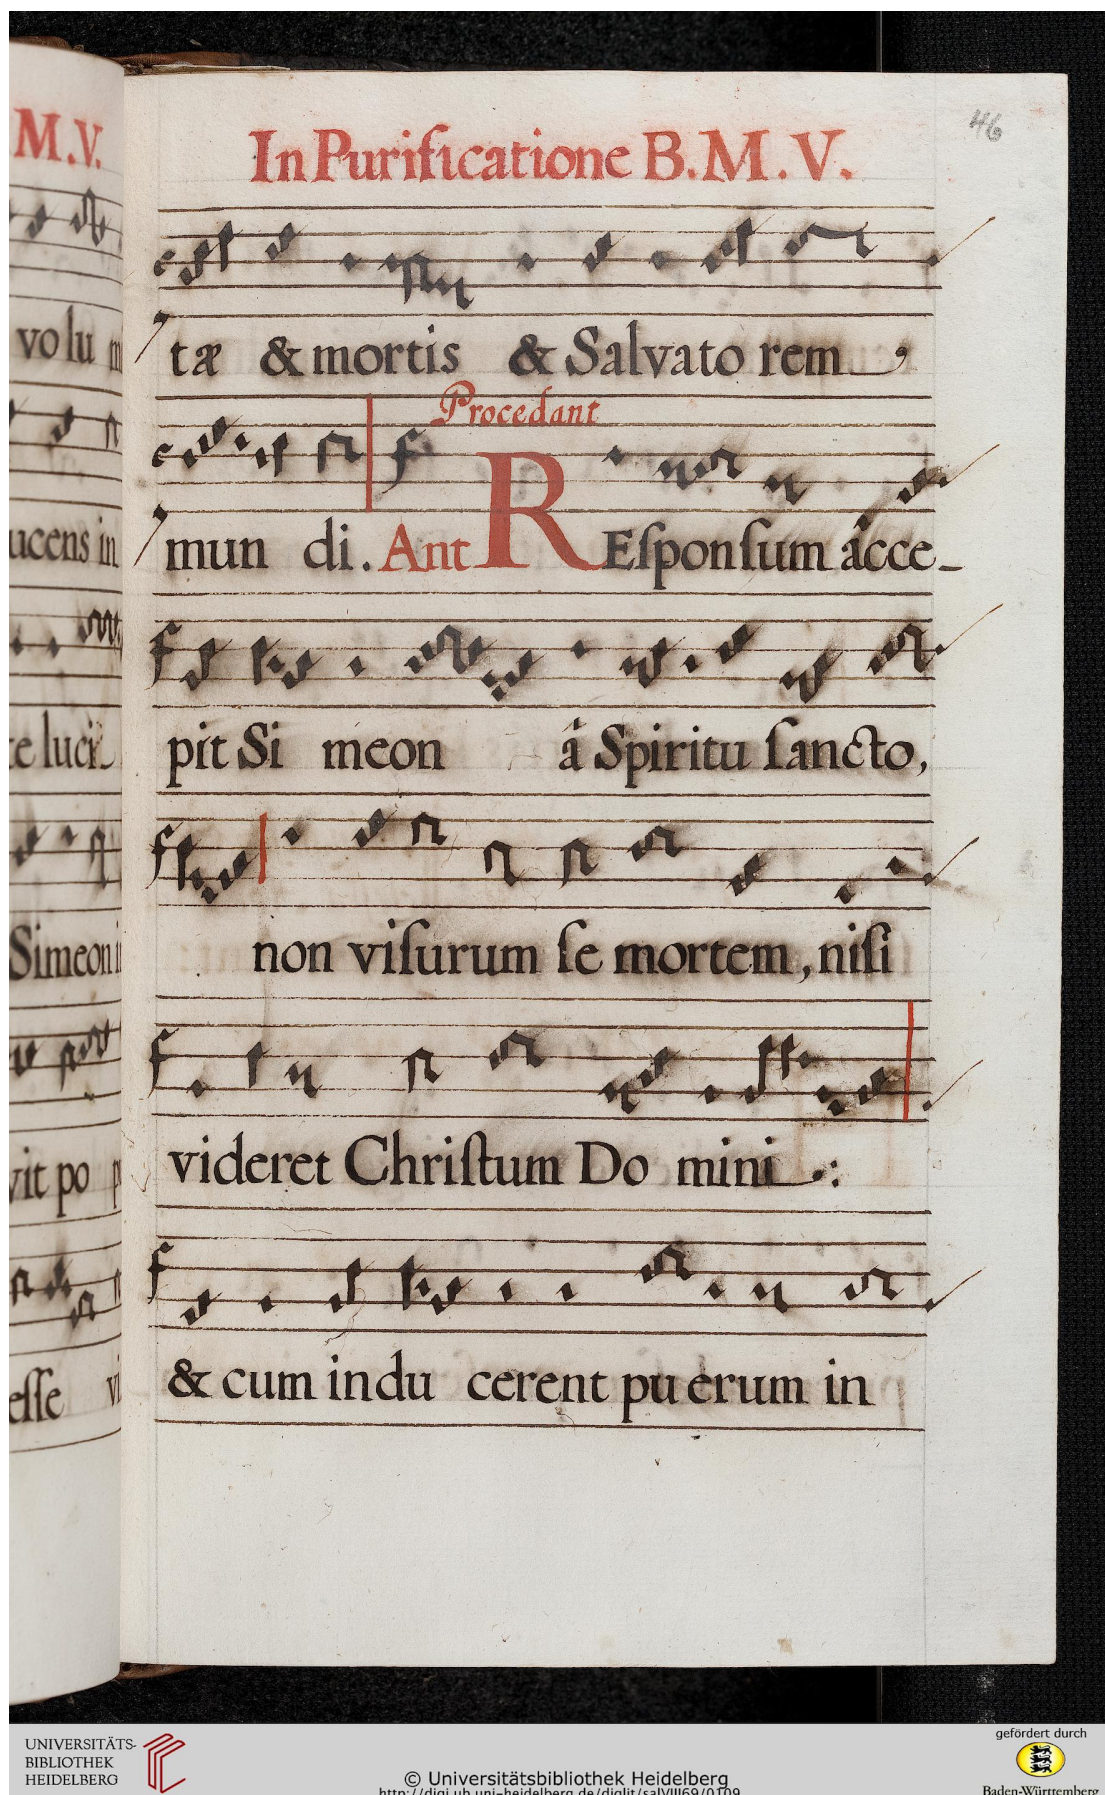 M.V.
volu
ucens in
te luci
Simeon i
vit po p
esse vi
46
In Purificatione B. M. V.
tæ & mortis & Salvato rem
Procedant
mun di. Ant REſponſum ãcce-
pit Si meon â Spiritu ſancto,
non viſurum ſe mortem, niſi
videret Chriſtum Do mini .:
& cum indu cerent pu erum in
UNIVERSITÄTS-
BIBLIOTHEK
HEIDELBERG
© Universitätsbibliothek Heidelberg
http://digi.ub.uni-heidelberg.de/diglit/salVIII69/0109
gefördert durch
Baden-Württemberg